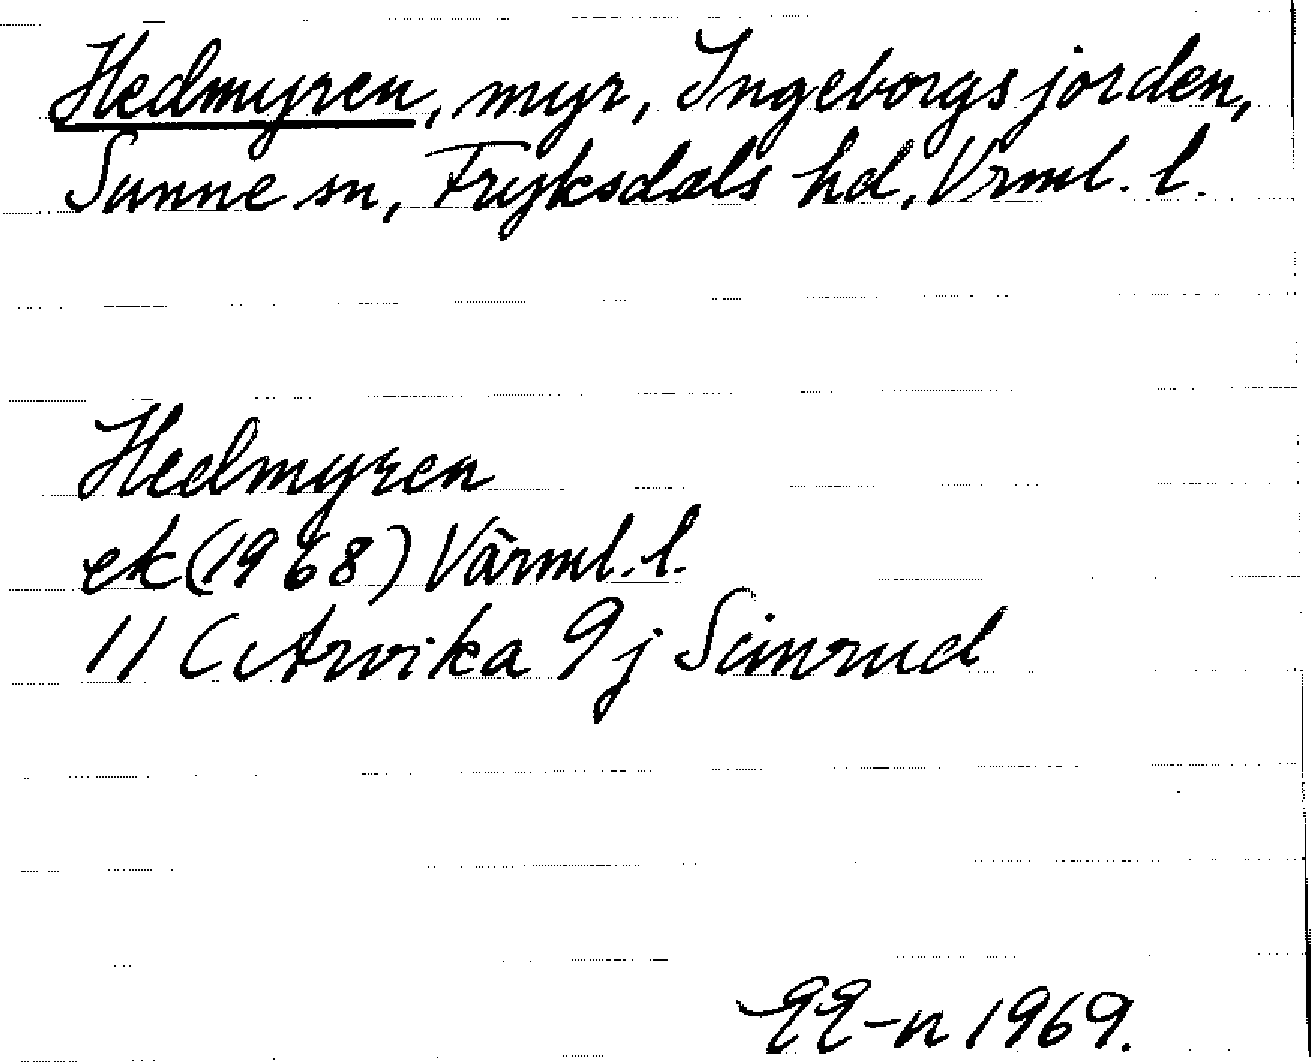 Hedmyren, myr, Ingeborgsjorden,
Sunne sn, Fryksdals hd, Vrml. l.
Hedmyren
ek (1968) Värml. l.
11 C Arvika 9j Simrud
EE-n 1969.